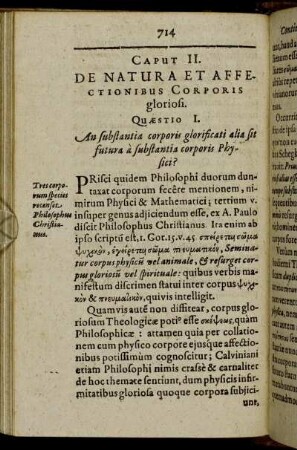 714
CAPUT II.
DE NATURA ET AFFE-
CTIONIBUS CORPORIS
gloriosi.
QUÆSTIO I.
An substantia corporis glorificati alia sit
futura à substantia corporis Phy-
sici?
Tres corpo-
rum species
recenset
Philosophus
Christia-
nus.
PRisci quidem Philosophi duorum dun-
taxat corporum fecêre mentionem, ni-
mirum Physici & Mathematici; tertium v.
insuper genus adjiciendum esse, ex A. Paulo
discit Philosophus Christianus. Ita enim ab
ipso scriptũ est. 1. Cor. 15. v. 45 σπείρεται σῶμα
ψυχικὸν, ἐγείρεται σῶμα πνευματικόν, Semina-
tur corpus physicũ vel animale, & resurget cor-
pus gloriosũ vel spirituale: quibus verbis ma-
nifestum discrimen statui inter corpus ψυχι-
κὸν & πνευμαλικὸν, quivis intelligit.
Quamvis autẽ non diffitear, corpus glo-
riosum Theologicæ poti⁹ esse σκέψεως, quàm
Philosophicæ: attamen quia per collatio-
nem cum physico corpore ejusque affectio-
nibus potissimùm cognoscitur; Calviniani
etiam Philosophi nimis crassè & carnaliter
de hoc themate sentiunt, dum physicis infir-
mitatibus gloriosa quoque corpora subjici-
unt,